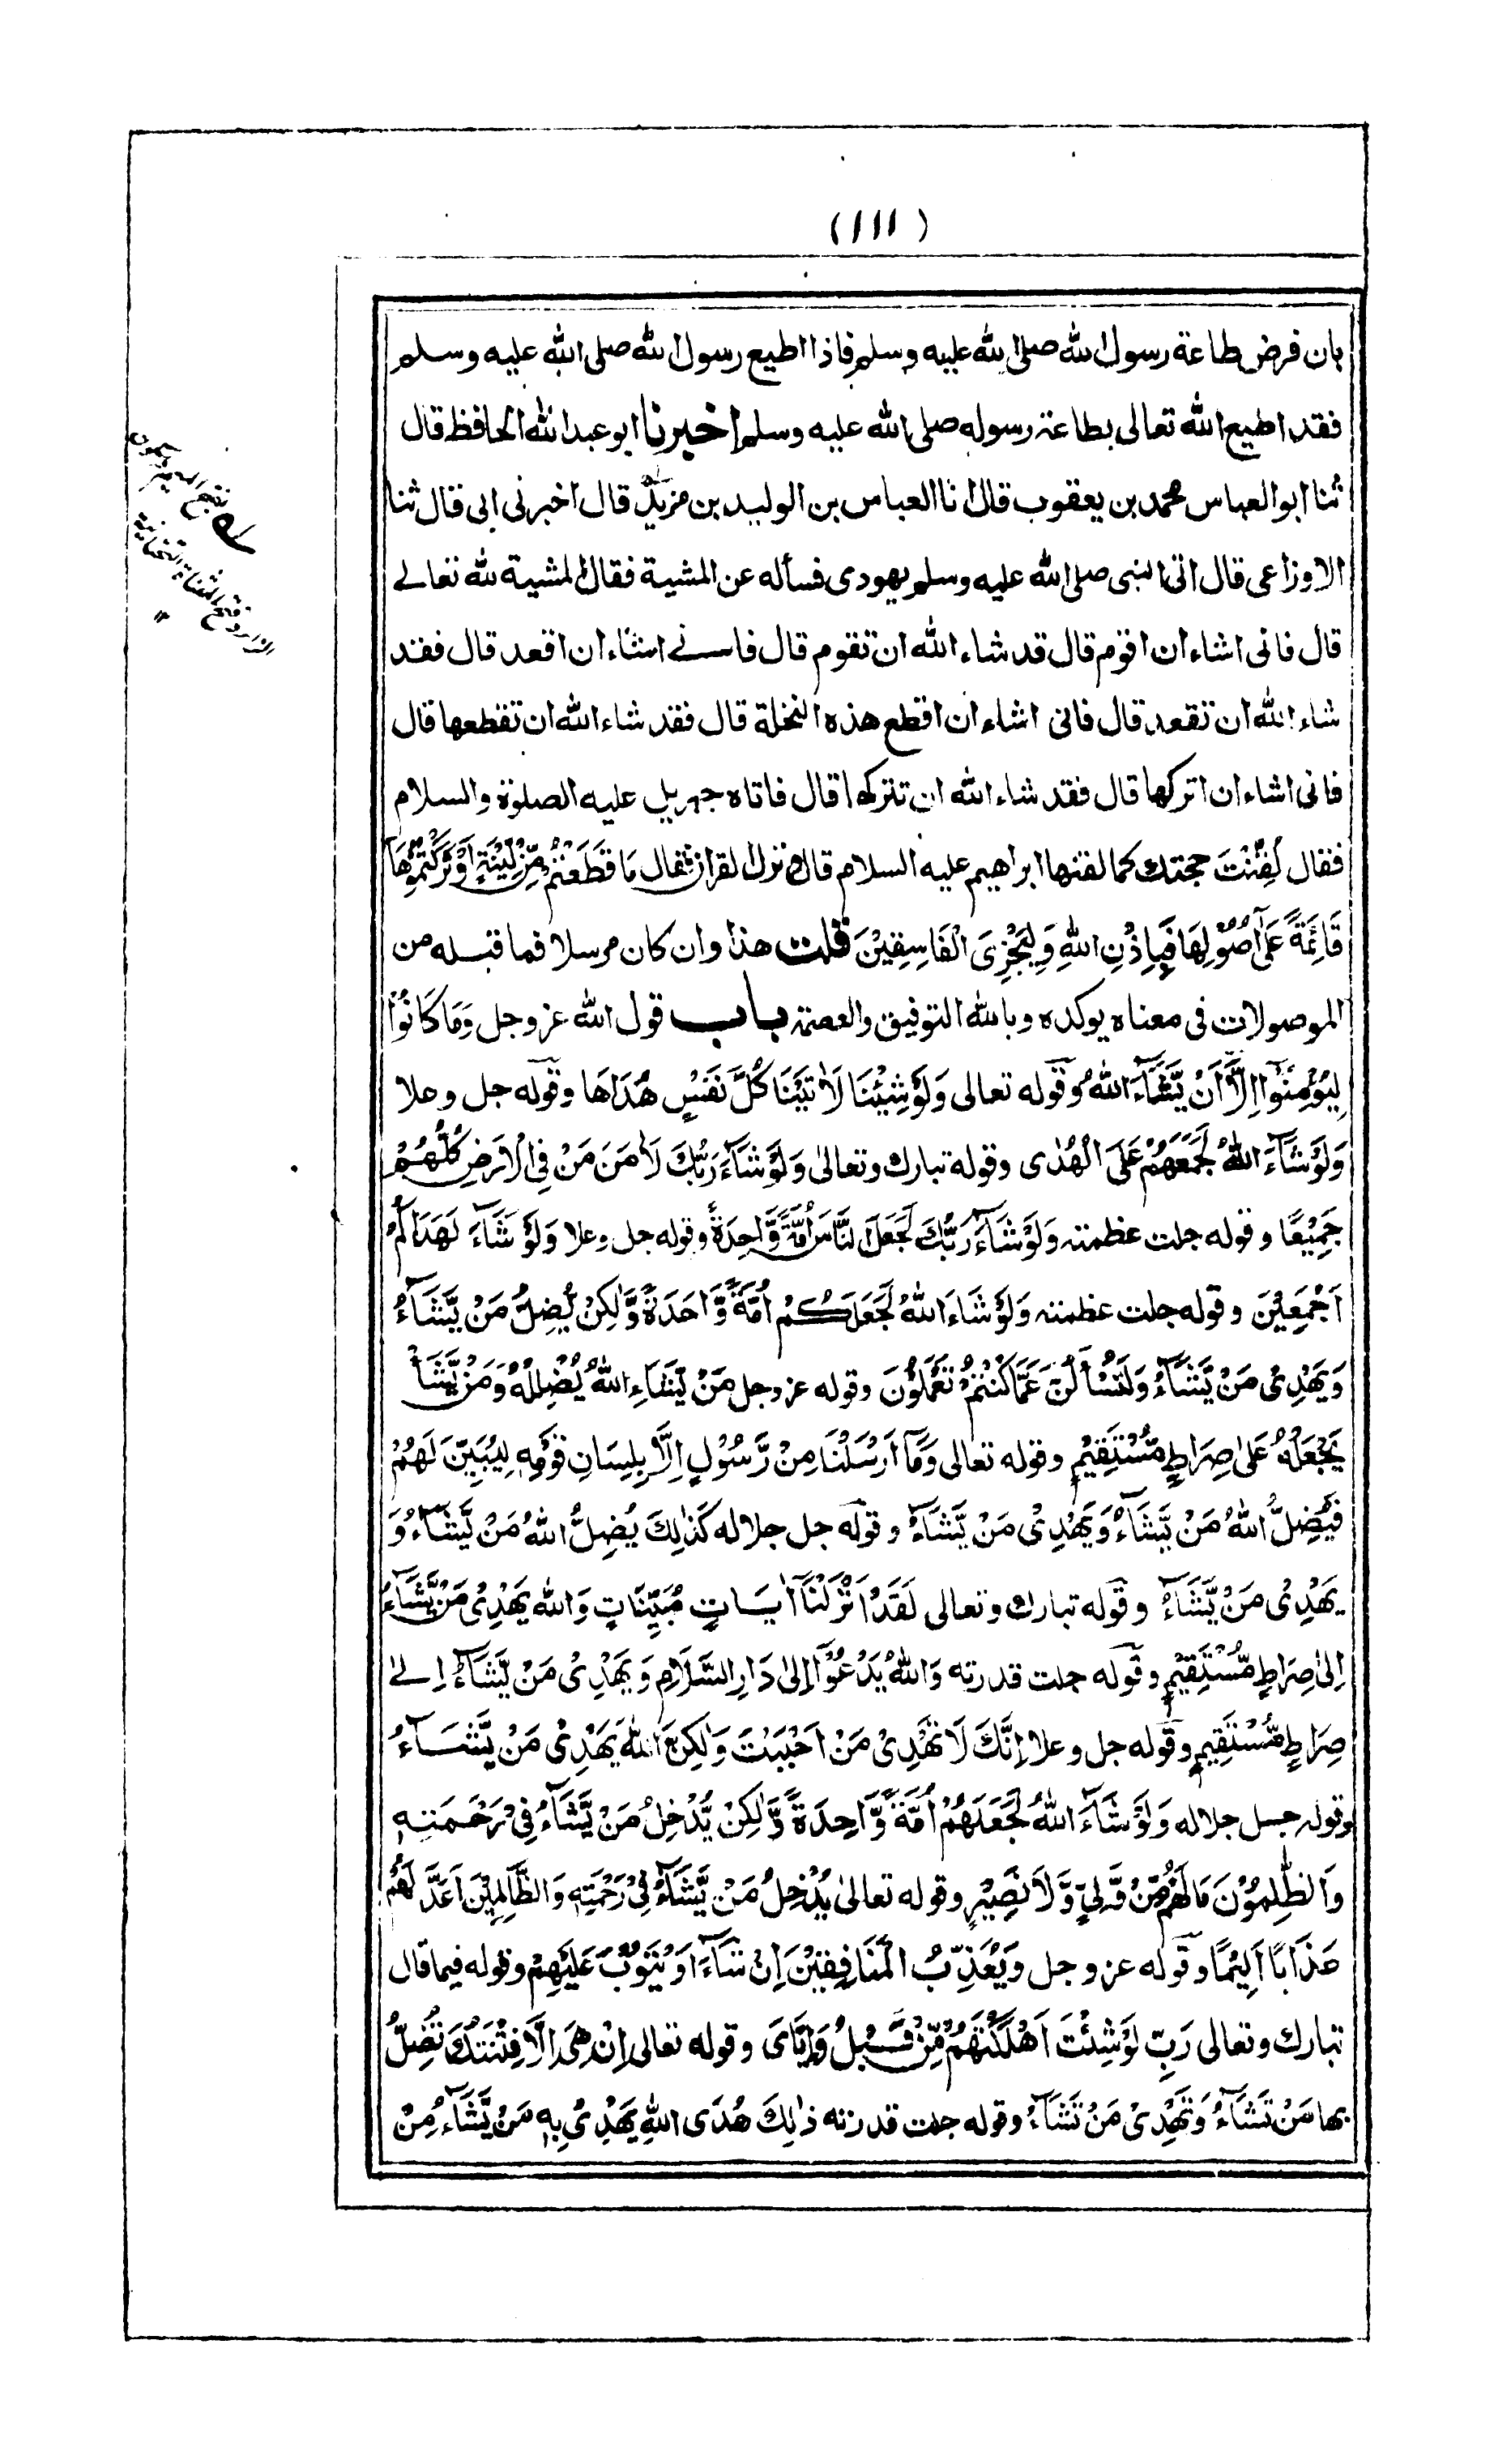 (١١١)
بان فرض طاعة رسول الله صلى الله عليه وسلم فاذا اطيع رسول الله صلى الله عليه وسلم
فقد اطيع الله تعالى بطاعة رسوله صلى الله عليه وسلم اخبرنا ابو عبد الله الحافظ قال
ثنا ابو العباس محمد بن يعقوب قال انا العباس بن الوليد بن مزيد قال اخبرنى ابى قال ثنا
الاوزاعى قال اتى النبى صلى الله عليه وسلم يهودى فسأله عن المشية فقال المشية لله تعالے
قال فانى اشاء ان اقوم قال قد شاء الله ان تقوم قال فانے اشاء ان اقعد قال فقد
شاء الله ان تقعد قال فانى اشاء ان اقطع هذه النخلة قال فقد شاء الله ان تقطعها قال
فانى اشاء ان اتركها قال فقد شاء الله ان تتركها قال فاتاه جبريل عليه الصلوة والسلام
فقال لُقِّنْتَ حجتك كما لقنها ابراهيم عليه السلام قال ونزل القران فقال مَا قَطَعْتُمْ مِّنْ لِّيْنَةٍ اَوْ تَرَكْتُمُوْهَا
قَائِمَةً عَلٰٓى اُصُوْلِهَا فَبِاِذْنِ اللّٰهِ وَلِيُخْزِىَ الْفَاسِقِيْنَ قلت هذا وان كان مرسلا فما قبله من
الموصولات فى معناه يوكده وبالله التوفيق والعصمة باب قول الله عز وجل وَمَا كَانُوْا
لِيُؤْمِنُوْٓا اِلَّٓا اَنْ يَّشَآءَ اللّٰهُ وقوله تعالى وَلَوْ شِيْئْنَا لَاٰتَيْنَا كُلَّ نَفْسٍ هُدَاهَا وقوله جل وعلا
وَلَوْ شَآءَ اللّٰهُ لَجَمَعَهُمْ عَلَى الْهُدٰى وقوله تبارك وتعالىٰ وَلَوْ شَآءَ رَبُّكَ لَاٰمَنَ مَنْ فِى الْاَرْضِ كُلُّهُمْ
جَمِيْعًا وقوله جلت عظمته وَلَوْ شَآءَ رَبُّكَ لَجَعَلَ النَّاسَ اُمَّةً وَّاحِدَةً وقوله جل وعلا وَلَوْ شَآءَ لَهَدَاكُمْ
اَجْمَعِيْنَ وقوله جلت عظمته وَلَوْ شَاءَ اللّٰهُ لَجَعَلَكُمْ اُمَّةً وَّاحِدَةً وَّلٰكِنْ يُّضِلُّ مَنْ يَّشَآءُ
وَيَهْدِىْ مَنْ يَّشَآءُ وَلَتُسْأَلُنَّ عَمَّا كُنْتُمْ تَعْمَلُوْنَ وقوله عز وجل مَنْ يَّشَاءِ اللّٰهُ يُضْلِلْهُ وَمَنْ يَّشَأْ
يَجْعَلْهُ عَلىٰ صِرَاطٍ مُّسْتَقِيْمٍ وقوله تعالى وَمَآ اَرْسَلْنَا مِنْ رَّسُوْلٍ اِلَّا بِلِسَانِ قَوْمِهٖ لِيُبَيِّنَ لَهُمْ
فَيُضِلُّ اللّٰهُ مَنْ يَّشَآءُ وَيَهْدِىْ مَنْ يَّشَآءُ وقوله جل جلاله كَذٰلِكَ يُضِلُّ اللّٰهُ مَنْ يَّشَآءُ وَ
يَهْدِىْ مَنْ يَّشَآءُ وقوله تبارك وتعالى لَقَدْ اَنْزَلْنَآ اٰيَاتٍ مُّبَيِّنَاتٍ وَاللّٰه يَهْدِىْ مَنْ يَّشَآءُ
اِلىٰ صِرَاطٍ مُّسْتَقِيْمٍ وقوله جلت قدرته وَاللّٰهُ يَدْعُوْٓا اِلىٰ دَارِ السَّلَامِ وَيَهْدِىْ مَنْ يَّشَآءُ اِلےٰ
صِرَاطٍ مُّسْتَقِيْمٍ وقوله جل وعلا اِنَّكَ لَا تَهْدِىْ مَنْ اَحْبَبْتَ وَلٰكِنَّ اللّٰهَ يَهْدِىْ مَنْ يَّشَآءُ
وقوله جل جلاله وَلَوْ شَآءَ اللّٰهُ لَجَعَلَهُمْ اُمَّةً وَّاحِدَةً وَّلٰكِنْ يُّدْخِلُ مَنْ يَّشَآءُ فِىْ رَحْمَتِهٖ
وَالظّٰلِمُوْنَ مَا لَهُمْ مِّنْ وَّلِىٍّ وَّلَا نَصِيْرٍ وقوله تعالىٰ يُدْخِلُ مَنْ يَّشَآءُ فِىْ رَحْمَتِهٖ وَالظَّالِمِيْنَ اَعَدَّ لَهُمْ
عَذَابًا اَلِيْمًا وقوله عز وجل وَيُعَذِّبَ الْمُنَافِقِيْنَ اِنْ شَآءَ اَوْ يَتُوْبَ عَلَيْهِمْ وقوله فيما قال
تبارك وتعالى رَبِّ لَوْ شِئْتَ اَهْلَكْتَهُمْ مِّنْ قَبْلُ وَاِيَّاىَ وقوله تعالى اِنْ هِىَ اِلَّا فِتْنَتُكَ تُضِلُّ
بها مَنْ تَشَآءُ وَتَهْدِىْ مَنْ تَشَآءُ وقوله جلت قدرته ذٰلِكَ هُدَى اللّٰهِ يَهْدِىْ بِهٖ مَنْ يَّشَآءُ مِنْ